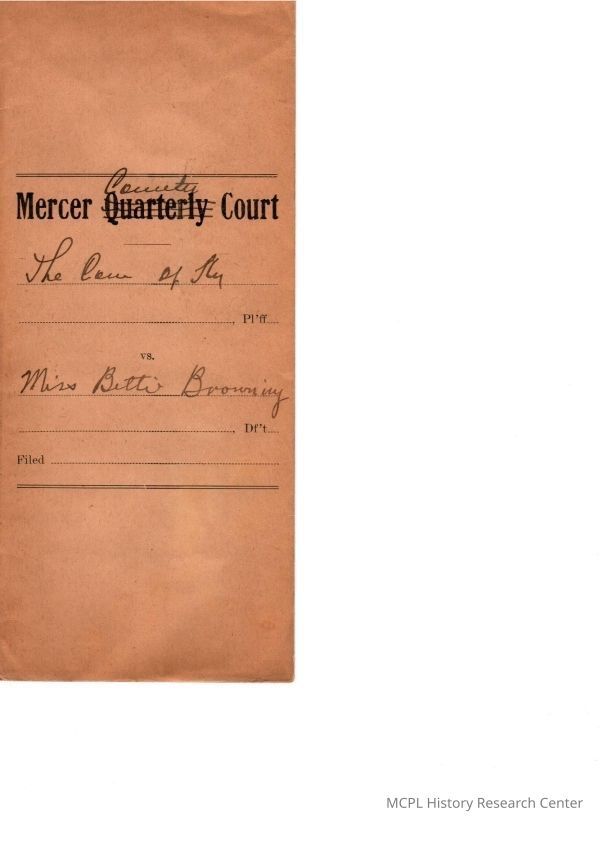 County
Mercer Quarterly Court
The Com of Ky
Pl'ff
vs.
Miss Bettie Browning
Df't
Filed
MCPL History Research Center